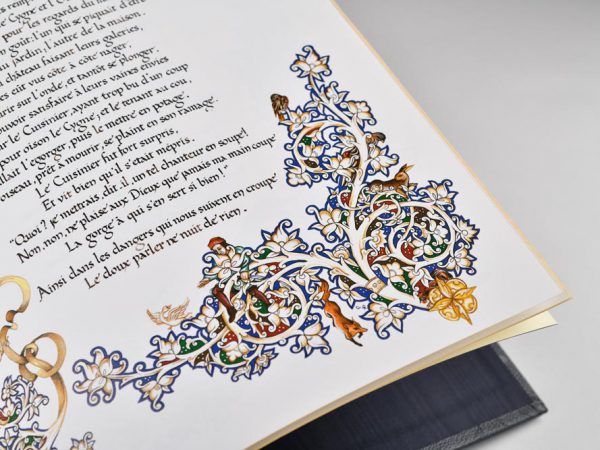 Cygne et l'
pour les regards du
goût: l'un qui se piquait d'être
jardin, l'autre de la maison,
château faisant leurs galeries,
eût vus côte à côte nager,
sur l'onde, et tantôt se plonger,
satisfaire à leurs vaines envies
le Cuisinier, ayant trop bu d'un coup
pour oison le Cygne, et le tenant au cou,
l'égorger, puis le mettre en potage.
prêt à mourir, se plaint en son ramage.
Le Cuisinier fut fort surpris,
Et vit bien qu'il s'était mépris.
"Quoi? je mettrais, dit-il, un tel chanteur en soupe!
Non, non, ne plaise aux Dieux que jamais ma main coupe
La gorge à qui s'en sert si bien!"
Ainsi dans les dangers qui nous suivent en croupe
Le doux parler ne nuit de rien.